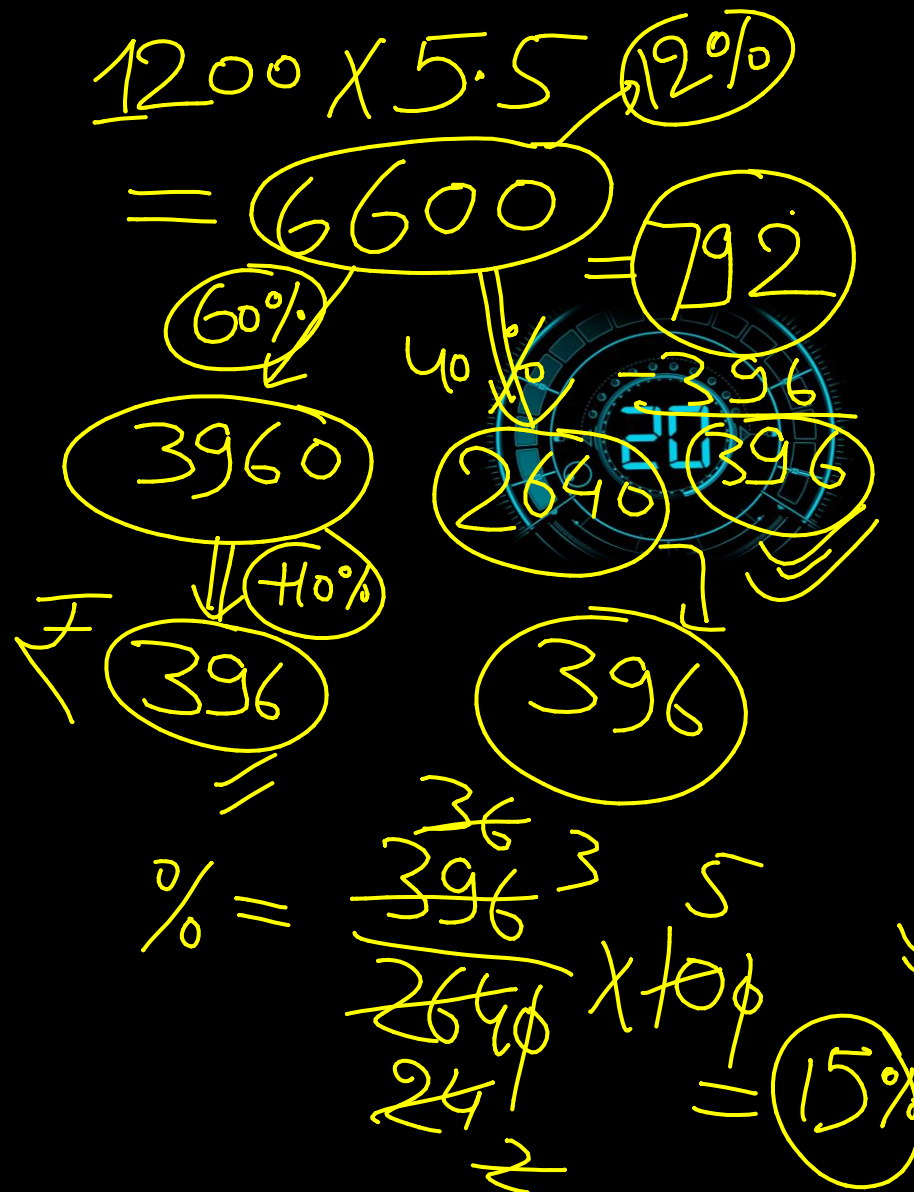 1200 × 5.5 12%
= 6600
= 792
60%
40%
- 396
20
3960
2640
396
+10%
₹ 396
396
36
396 3
% = 2640 × 100 5
24
2
= 15%